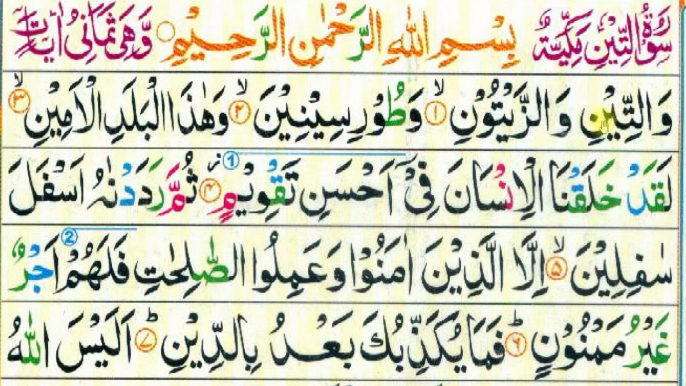 سُوْرَةُ التِّيْنِ مَكِّيَّةٌ بِسْمِ اللهِ الرَّحْمٰنِ الرَّحِيْمِ ○ وَّهِىَ ثَمَانِىْ اٰيَاتٍ
وَالتِّيْنِ وَالزَّيْتُوْنِ ۙ‏﴿۱﴾ وَطُوْرِ سِيْنِيْنَ ۙ‏﴿۲﴾ وَهٰذَا الْبَلَدِ الْاَمِيْنِ ۙ‏﴿۳﴾
لَقَدْ خَلَقْنَا الْاِنْسَانَ فِىْۤ اَحْسَنِ تَقْوِيْمٍ ۫‏﴿۴﴾ ① ثُمَّ رَدَدْنٰهُ اَسْفَلَ
سٰفِلِيْنَ ۙ‏﴿۵﴾ ② اِلَّا الَّذِيْنَ اٰمَنُوْا وَعَمِلُوا الصّٰلِحٰتِ فَلَهُمْ اَجْرٌ
غَيْرُ مَمْنُوْنٍ ؕ‏﴿۶﴾ فَمَا يُكَذِّبُكَ بَعْدُ بِالدِّيْنِ ؕ‏﴿۷﴾ اَلَيْسَ اللهُ